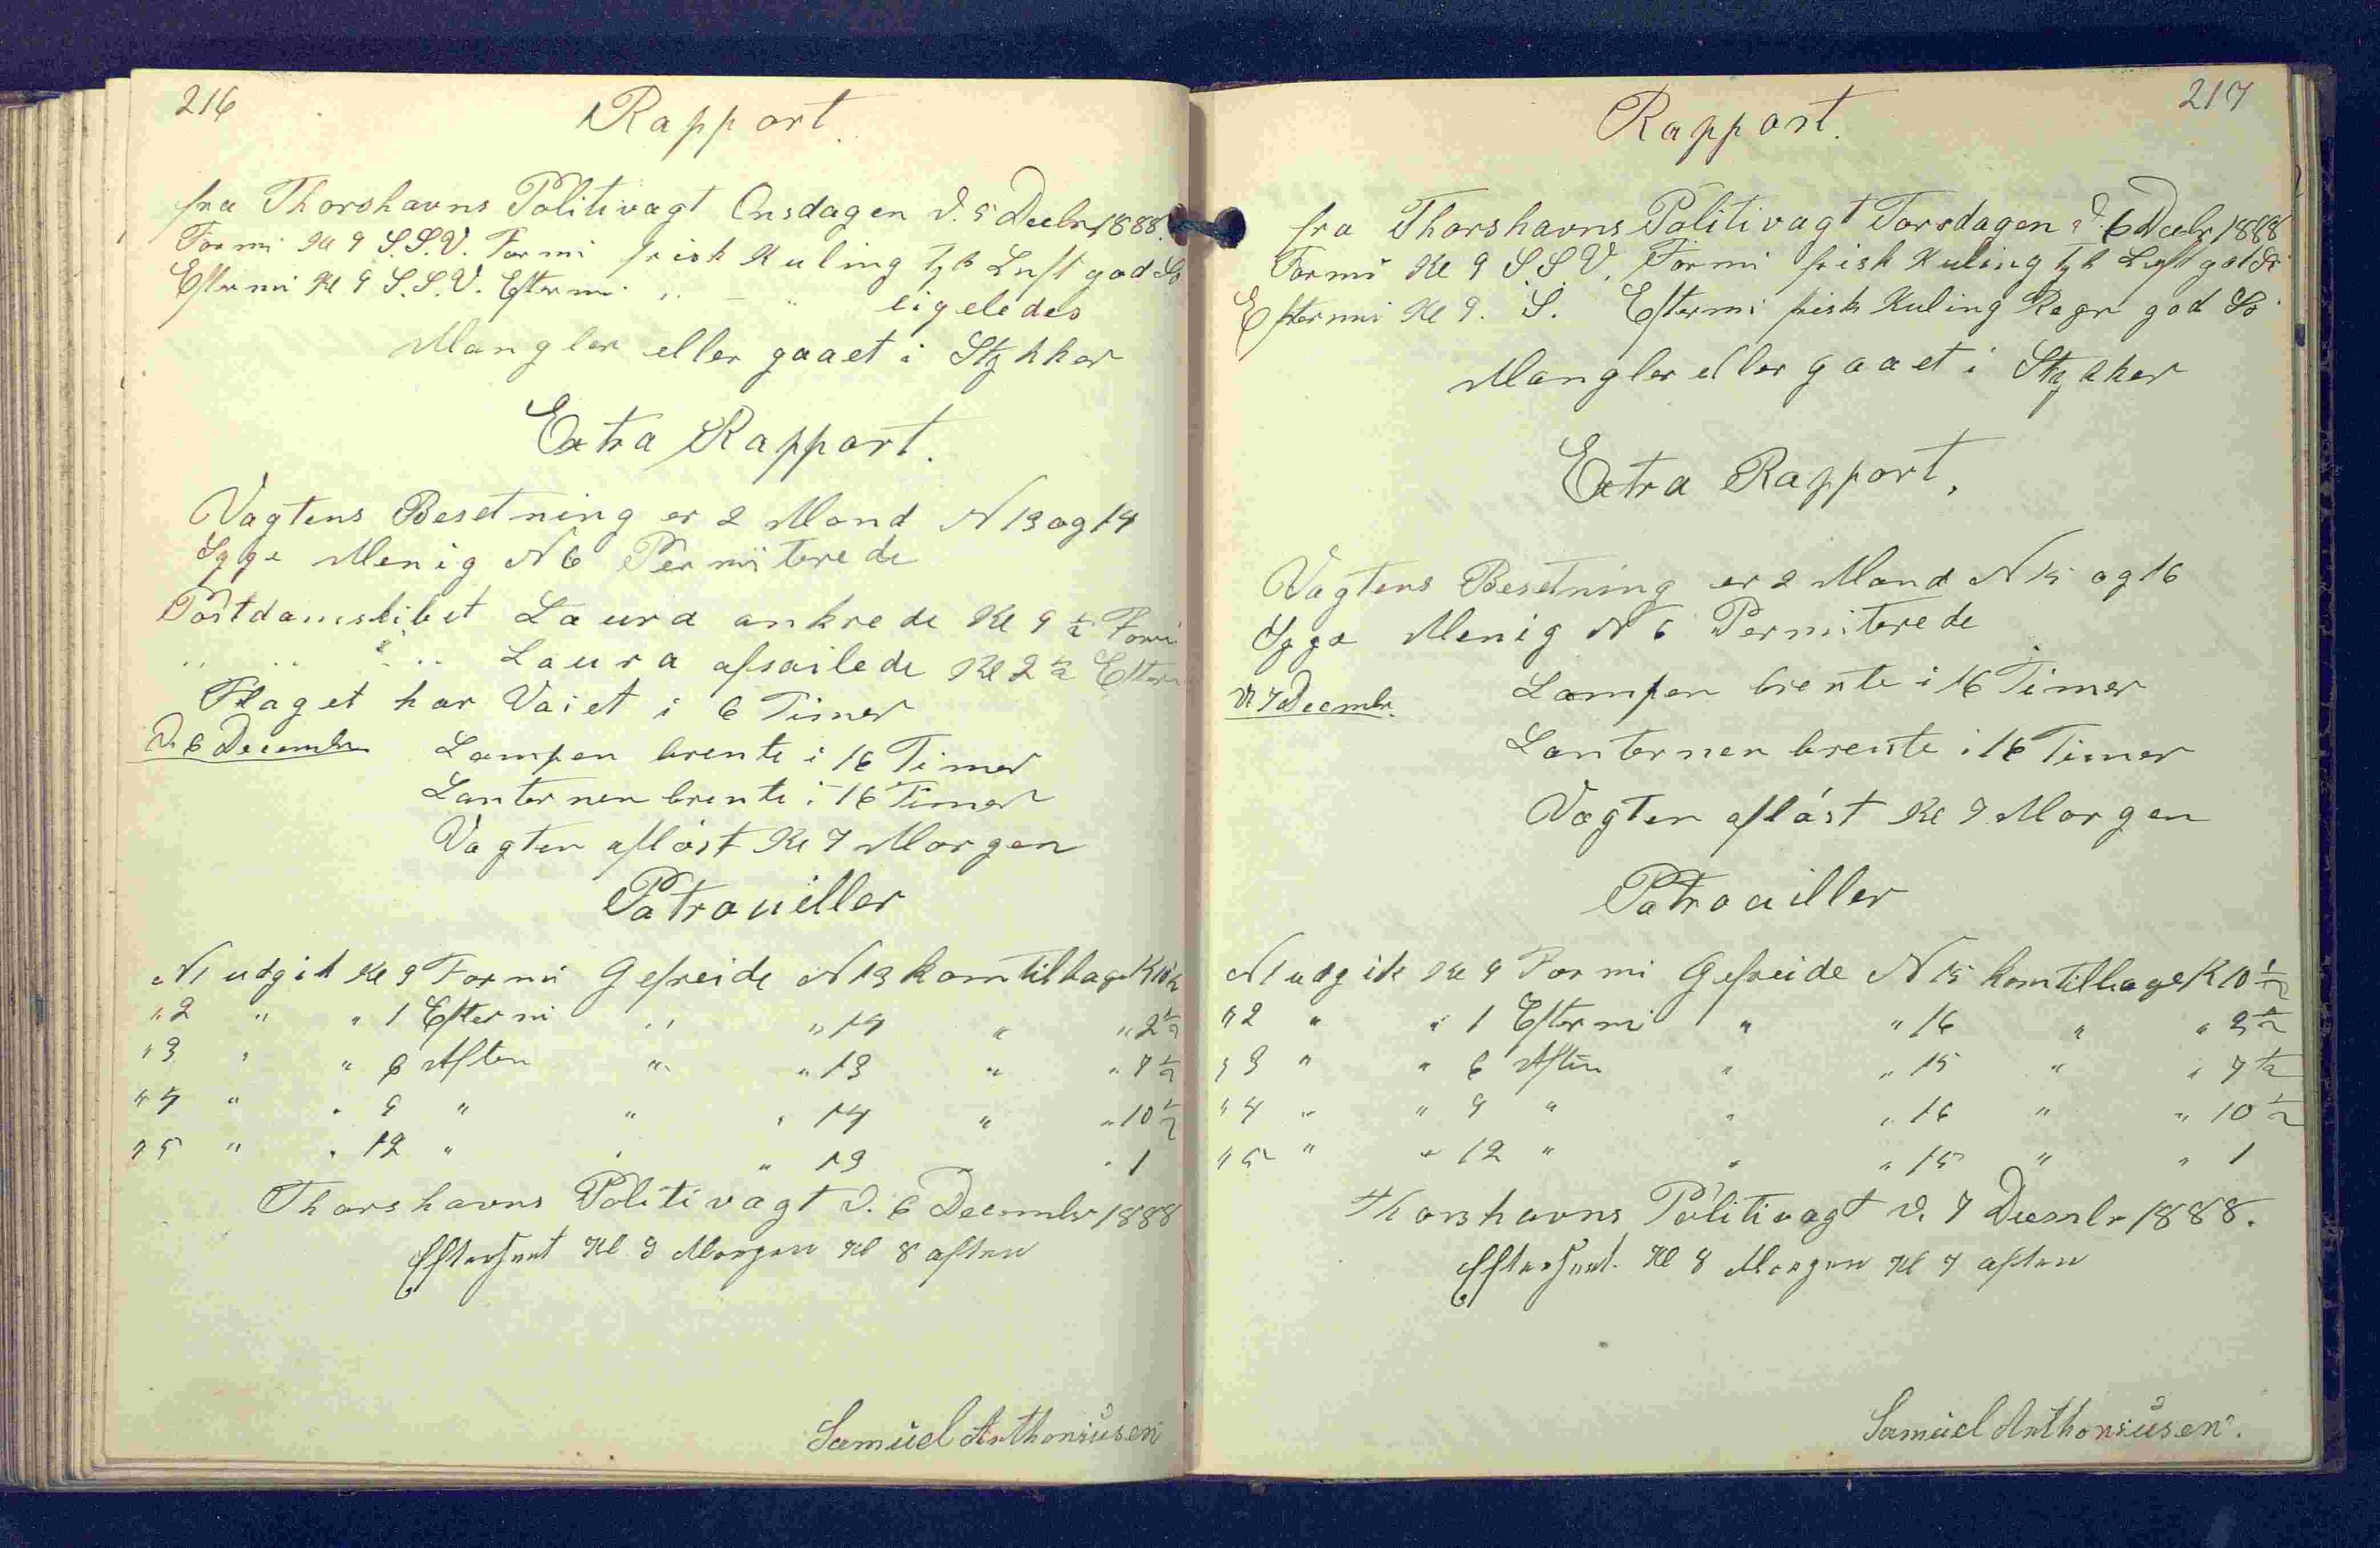 216
Rapport.
fra Thorshavns Politivagt Onsdagen d. 5 Decbr 1888.
Formi Kl 9 S.S.V. Formi frisk Kuling tyk Luft god Sö
Eftermi Kl 9 S.S.V. Eftermi " - " ligeledes
Mangler eller gaaet i Stykker
Extra Rapport.
Vagtens Besetning er 2 Mand N 13 og 14
Syge Menig N 6 Permiterede
Postdamskibet Laura ankrede Kl 9 1/2 Formi
" " " Laura afsailede Kl 2 1/2 Efterm
Flaget har Vaiet i 6 Timer
D. 6 December Lampen brente i 16 Timer
Lanternen brente i 16 Timer
Vagten aflöst Kl 7 Morgen
Patrouiller
N 1 udgik Kl 9 Formi Gefreide N 13 kom tilbage K 10 1/2
" 2 " " 1 Eftermi " " 14 " " 2 1/2
" 3 " " 6 Aften " " 13 " " 7 1/2
" 4 " " 9 " " " 14 " " 10 1/2
" 5 " " 12 " " " 13 " " 1
Thorshavns Politivagt d. 6 December 1888
Efterseet Kl 9 Morgen Kl 8 aften
Samuel Anthoniusen
217
Rapport.
fra Thorshavns Politivagt Torsdagen d. 6 Decbr 1888
Formi Kl 9 S.S.V. Formi frisk Kuling tyk Luft god Sö
Eftermi Kl 9. S. Eftermi frisk Kuling Regn god Sö
Mangler eller gaaet i Stykker
Extra Rapport.
Vagtens Besetning er 2 Mand N 15 og 16
Syge Menig N 6 Permiterede
D 7 Decembr. Lampen brente i 16 Timer
Lanternen brente i 16 Timer
Vagten aflöst Kl 7 Morgen
Patrouiller
N 1 udgik Kl 9 Formi Gefreide N 15 kom tilbage K 10 1/2
" 2 " " 1 Eftermi " " 16 " " 2 1/2
" 3 " " 6 Aften " " 15 " " 7 1/2
" 4 " " 9 " " " 16 " " 10 1/2
" 5 " " 12 " " " 15 " " 1
Thorshavns Politivagt d. 7 Decembr 1888.
Efterseet. Kl 8 Morgen Kl 7 aften
Samuel Anthoniusen.